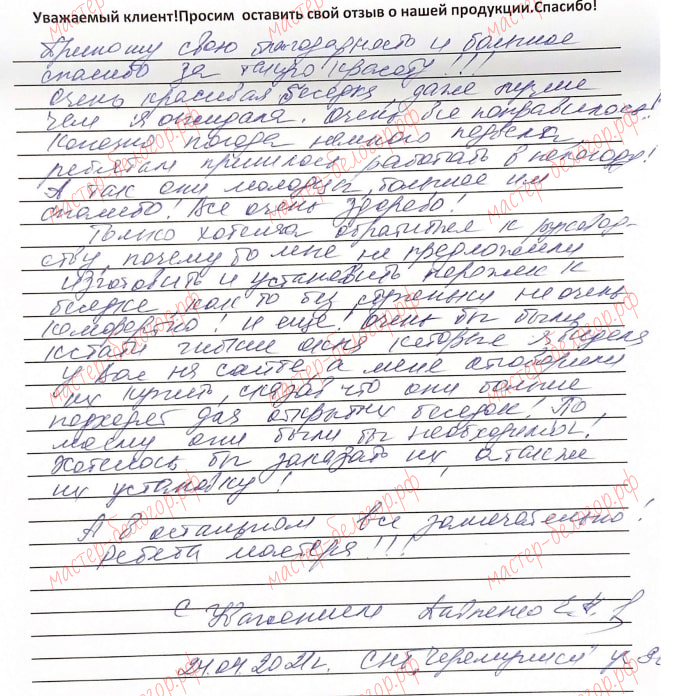 Уважаемый клиент!Просим оставить свой отзыв о нашей продукции.Спасибо!
Приношу свою благодарность и большое
спасибо за такую красоту!!!
Очень красивая беседка даже лучше
чем я ожидала. Очень все понравилось!
Конечно погода немного подвела
ребятам пришлось работать в непогоду!
А так они молодцы, большое им
спасибо! Все очень здорово!
Только хотелось обратиться к руковод-
ству, почему то мне не предложили
изготовить и установить порожек к
беседке, как то без ступеньки не очень
комфортно! И еще! Очень бы были
кстати гибкие окна которые я видела
у Вас на сайте, а мне отговорили
их купить, сказав что они больше
подходят для открытых беседок! По
моему они были бы необходимы!
Хотелось бы заказать их, а также
их установку!
А в остальном все замечательно!
Ребята мастера!!!
С уважением Е.Н.
24.04.2021г. СНТ "Черемушки" у
мастер-белогор.рф